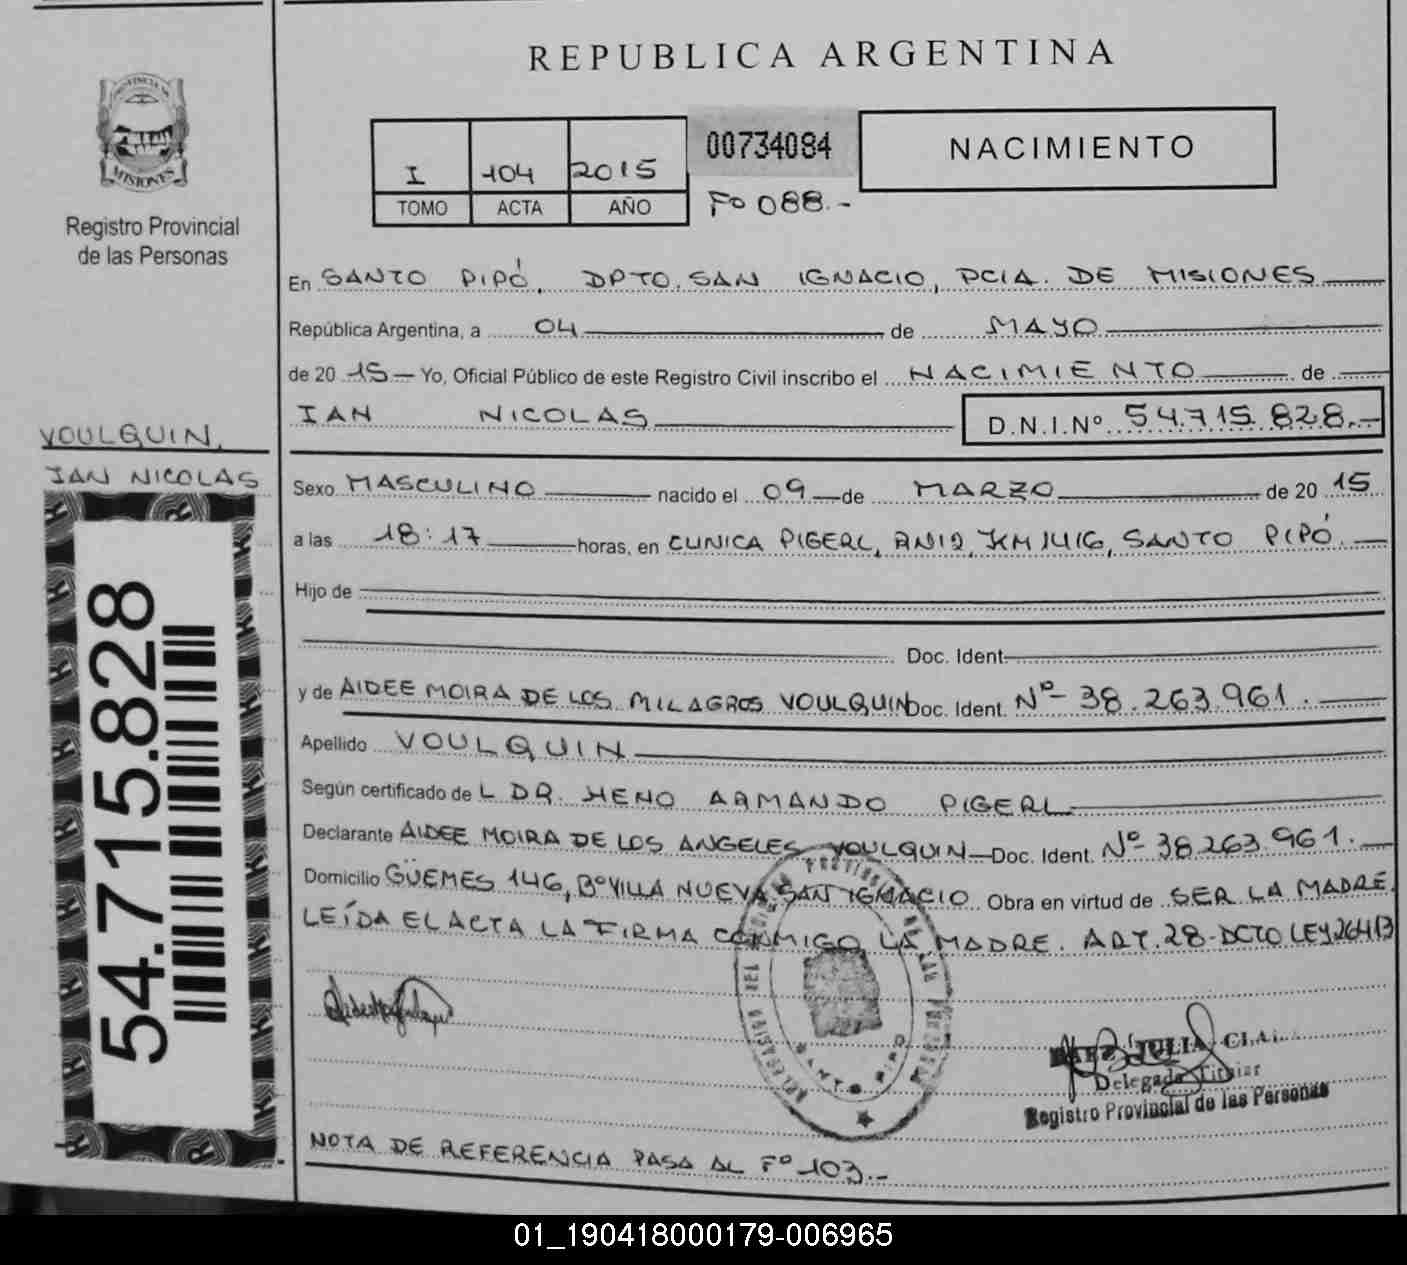 REPUBLICA ARGENTINA
PROVINCIA DE
MISIONES
Registro Provincial
de las Personas
I 104 2015
TOMO ACTA AÑO
00734084
Fº 088.-
NACIMIENTO
En SANTO PIPÓ, DPTO. SAN IGNACIO, PCIA. DE MISIONES
República Argentina, a 04 de MAYO
de 20 15 Yo, Oficial Público de este Registro Civil inscribo el NACIMIENTO de
IAN NICOLAS D.N.I.Nº 54.715.828.-
VOULQUIN,
IAN NICOLAS
54.715.828
Sexo MASCULINO nacido el 09 de MARZO de 20 15
a las 18:17 horas, en CLINICA PIGERL, RN12, KM 1416, SANTO PIPÓ.
Hijo de
Doc. Ident
y de AIDEE MOIRA DE LOS MILAGROS VOULQUIN Doc. Ident. Nº- 38.263.961.
Apellido VOULQUIN
Según certificado de L DR. HENO ARMANDO PIGERL
Declarante AIDEE MOIRA DE LOS ANGELES VOULQUIN Doc. Ident. Nº- 38.263.961.
Domicilio GÜEMES 146, Bº VILLA NUEVA, SAN IGNACIO Obra en virtud de SER LA MADRE.
LEÍDA EL ACTA LA FIRMA CONMIGO LA MADRE. ART. 28-DCTO LEY 26413
SANTO PIPO
BAEZ JULIA
Delegada Titular
Registro Provincial de las Personas
NOTA DE REFERENCIA PASA AL Fº 103.-
01_190418000179-006965